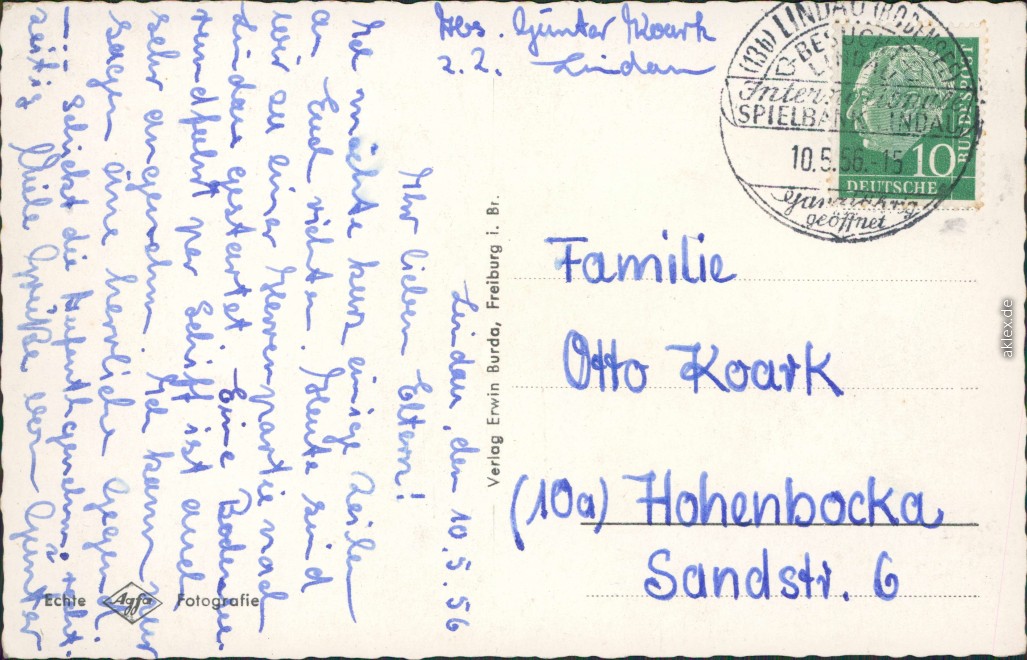 Abs. Günter Koark
z. Z. Lindau
Lindau, den 10.5.56
Ihr lieben Eltern!
Ich möchte kurz einige Zeilen
an Euch richten. Heute sind
wir zu einer Herrenpartie nach
Lindau gestartet. Eine Bodensee-
rundfahrt per Schiff ist auch
sehr angenehm. Ich kann nur
sagen eine herrliche Gegend.
Schickt die Aufenthgenehmi recht-
zeitig. Viele Grüße von Günter
Verlag Erwin Burda, Freiburg i. Br.
Echte Agfa Fotografie
(13b) LINDAU (BODENSEE)
BESUCHT
LINDAU
Internationale
SPIELBANK LINDAU
10.5.56.-15
Ganzjährig
geöffnet
10
DEUTSCHE
BUNDESPOST
Familie
Otto Koark
(10a) Hohenbocka
Sandstr. 6
aklex.de